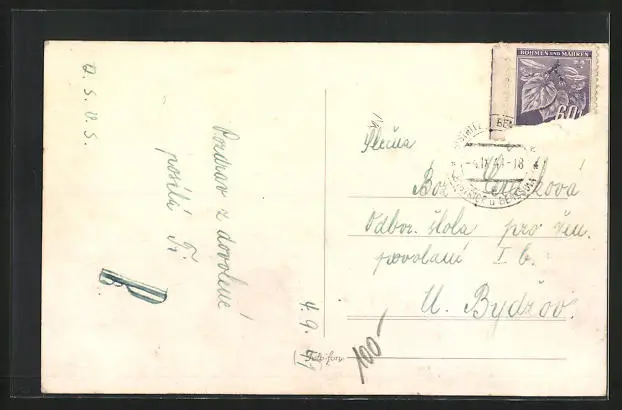 D. S. V. S.
Pozdrav z dovolené
posílá Ti
4. 9. 41
BÖHMEN UND MÄHREN
60
Slečna
Bož.
Odbor. škola pro žen.
povolání I b.
N. Bydžov.
Foto-fon
100-